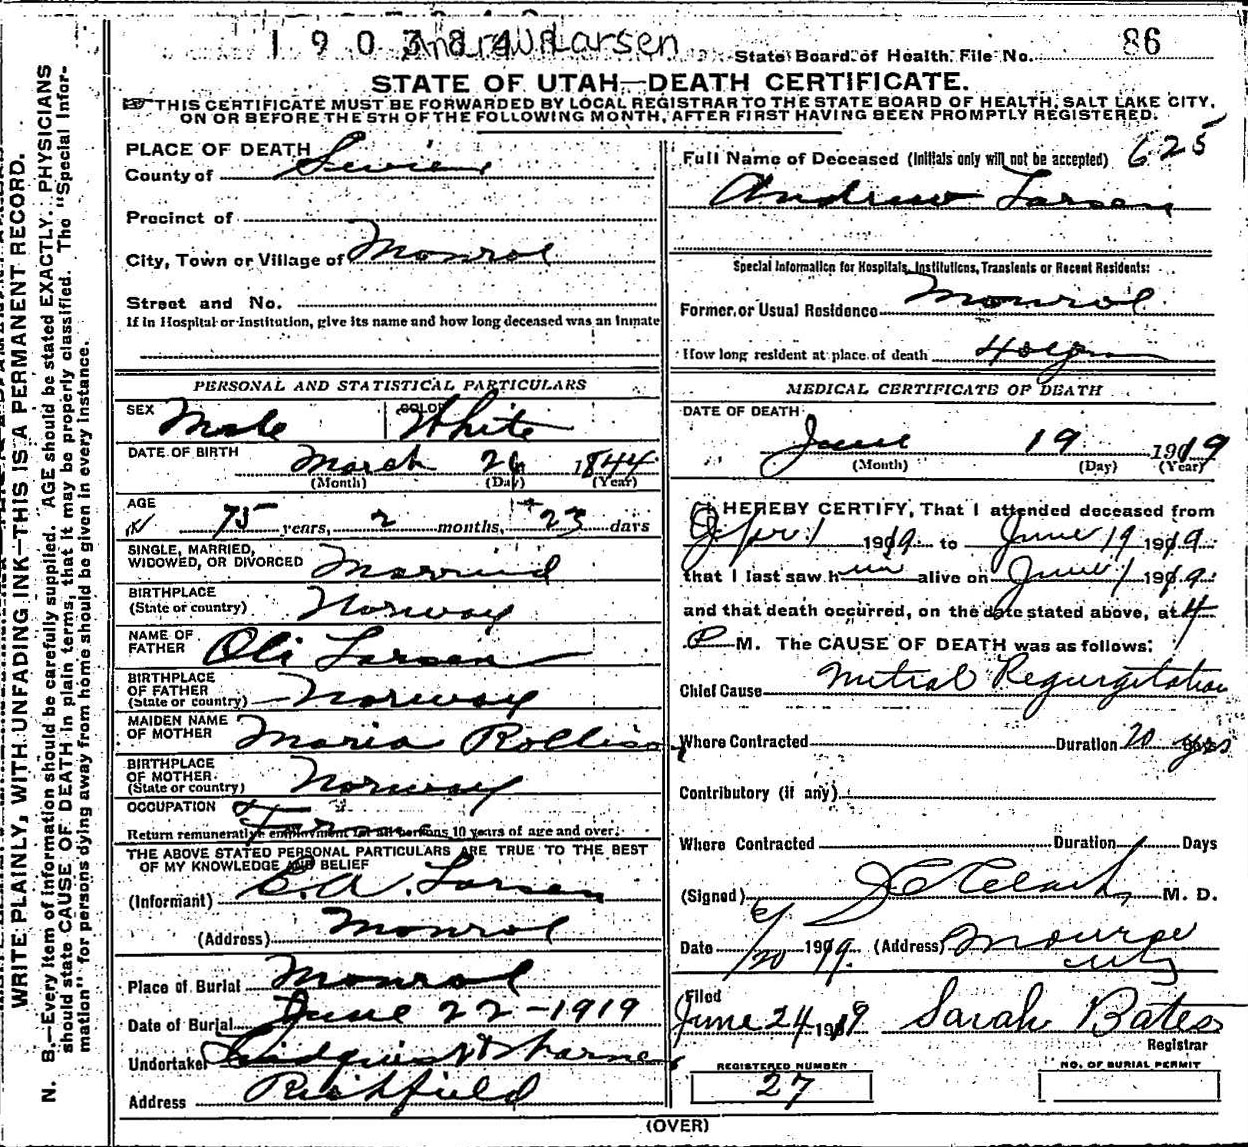 1903841 Andrew Larsen State Board of Health File No. 86
STATE OF UTAH—DEATH CERTIFICATE.
THIS CERTIFICATE MUST BE FORWARDED BY LOCAL REGISTRAR TO THE STATE BOARD OF HEALTH, SALT LAKE CITY,
ON OR BEFORE THE 5TH OF THE FOLLOWING MONTH, AFTER FIRST HAVING BEEN PROMPTLY REGISTERED.
PLACE OF DEATH
County of Sevier
Precinct of
City, Town or Village of Monroe
Street and No.
If in Hospital or Institution, give its name and how long deceased was an inmate
PERSONAL AND STATISTICAL PARTICULARS
SEX Male COLOR White
DATE OF BIRTH March 26 1844
(Month) (Day) (Year)
AGE 75 years, 2 months, 23 days
SINGLE, MARRIED,
WIDOWED, OR DIVORCED Married
BIRTHPLACE
(State or country) Norway
NAME OF
FATHER Oli Larsen
BIRTHPLACE
OF FATHER
(State or country) Norway
MAIDEN NAME
OF MOTHER Maria Rollison
BIRTHPLACE
OF MOTHER
(State or country) Norway
OCCUPATION Farmer
Return remunerative employment for all persons 10 years of age and over.
THE ABOVE STATED PERSONAL PARTICULARS ARE TRUE TO THE BEST
OF MY KNOWLEDGE AND BELIEF
(Informant) C. A. Larsen
(Address) Monroe
Place of Burial Monroe
Date of Burial June 22-1919
Undertaker Lindquist &
Address Richfield
Full Name of Deceased (Initials only will not be accepted) 625
Andrew Larsen
Special Information for Hospitals, Institutions, Transients or Recent Residents:
Former or Usual Residence Monroe
How long resident at place of death 40 yrs
MEDICAL CERTIFICATE OF DEATH
DATE OF DEATH
June 19 1919
(Month) (Day) (Year)
I HEREBY CERTIFY, That I attended deceased from
Apr 1 1919 to June 19 1919
that I last saw him alive on June 1 1919
and that death occurred, on the date stated above, at 4
P M. The CAUSE OF DEATH was as follows:
Chief Cause Mitral Regurgitation
Where Contracted Duration 20 yrs
Contributory (if any)
Where Contracted Duration Days
(Signed) J C Clark M. D.
Date 6/20 1919. (Address) Monroe
City
Filed
June 24 1919 Sarah Bates
Registrar
REGISTERED NUMBER
27
NO. OF BURIAL PERMIT
(OVER)
WRITE PLAINLY, WITH UNFADING INK—THIS IS A PERMANENT RECORD.
N. B.—Every item of information should be carefully supplied. AGE should be stated EXACTLY. PHYSICIANS
should state CAUSE OF DEATH in plain terms, that it may be properly classified. The "Special Infor-
mation" for persons dying away from home should be given in every instance.